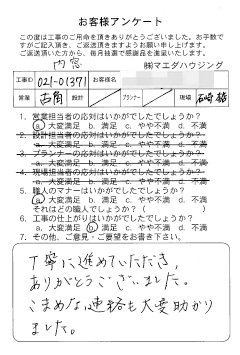 お客様アンケート
この度は工事のご用命を頂きありがとうございました。お手数で
すがご記入頂き、ご返送頂きますようお願い申し上げます。
ご返送頂いた方から、毎月抽選で感謝品を進呈いたします。
内窓
㈱マエダハウジング
工事ID 021-01371 お客様名
営業 古角 設計 プランナー 現場 石崎
1. 営業担当者の応対はいかがでしたでしょうか?
a. 大変満足 b. 満足 c. やや不満 d. 不満
2. 設計担当者の応対はいかがでしたでしょうか?
a. 大変満足 b. 満足 c. やや不満 d. 不満
3. プランナーの応対はいかがでしたでしょうか?
a. 大変満足 b. 満足 c. やや不満 d. 不満
4. 現場担当者の応対はいかがでしたでしょうか?
a. 大変満足 b. 満足 c. やや不満 d. 不満
5. 職人のマナーはいかがでしたでしょうか?
a. 大変満足 b. 満足 c. やや不満 d. 不満
それはどの職人でしょうか?( )
6. 工事の仕上がりはいかがでしたでしょうか?
a. 大変満足 b. 満足 c. やや不満 d. 不満
7. その他、ご意見・ご要望をお書き下さい。
丁寧に進めていただき、
ありがとうございました。
こまめな連絡も大変助かり
ました。